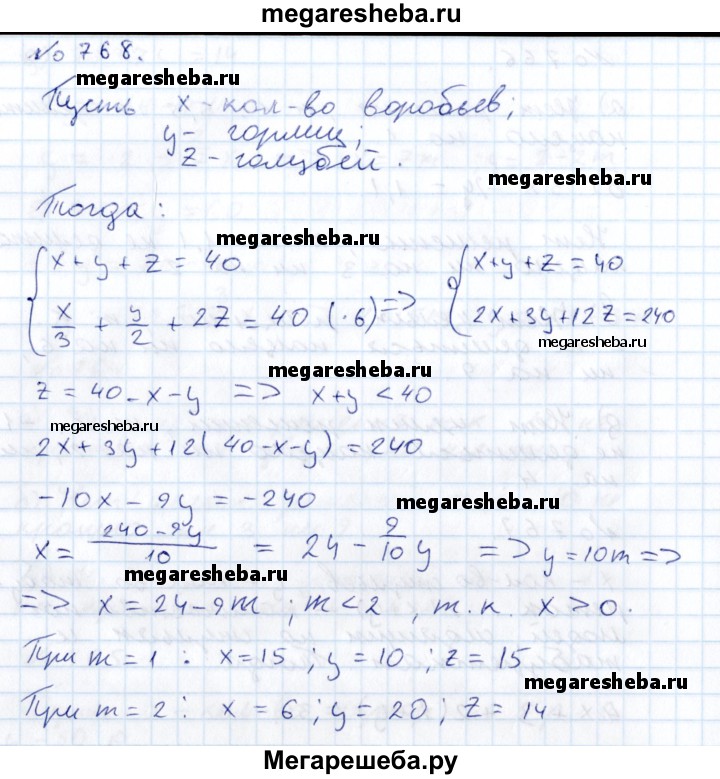 megaresheba.ru
№ 768.
megaresheba.ru
Пусть x - кол-во воробьев;
y - горлиц;
z - голубей.
megaresheba.ru
Тогда:
megaresheba.ru
{ x + y + z = 40
{ x/3 + y/2 + 2z = 40 (·6) => { x+y+z = 40
{ 2x+3y+12z = 240
megaresheba.ru
megaresheba.ru
z = 40 - x - y => x + y < 40
megaresheba.ru
2x + 3y + 12(40-x-y) = 240
-10x - 9y = -240
megaresheba.ru
x = (240-9y)/10 = 24 - 9/10 y => y = 10m =>
megaresheba.ru
=> x = 24 - 9m ; m < 2 , т.к. x > 0.
При m = 1 : x = 15 ; y = 10 ; z = 15
megaresheba.ru
При m = 2 : x = 6 ; y = 20 ; z = 14
Мегарешеба.ру